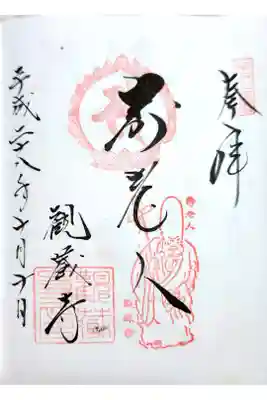 奉拝
寿老人
観蔵寺
平成二十八年十月十日
寿老人